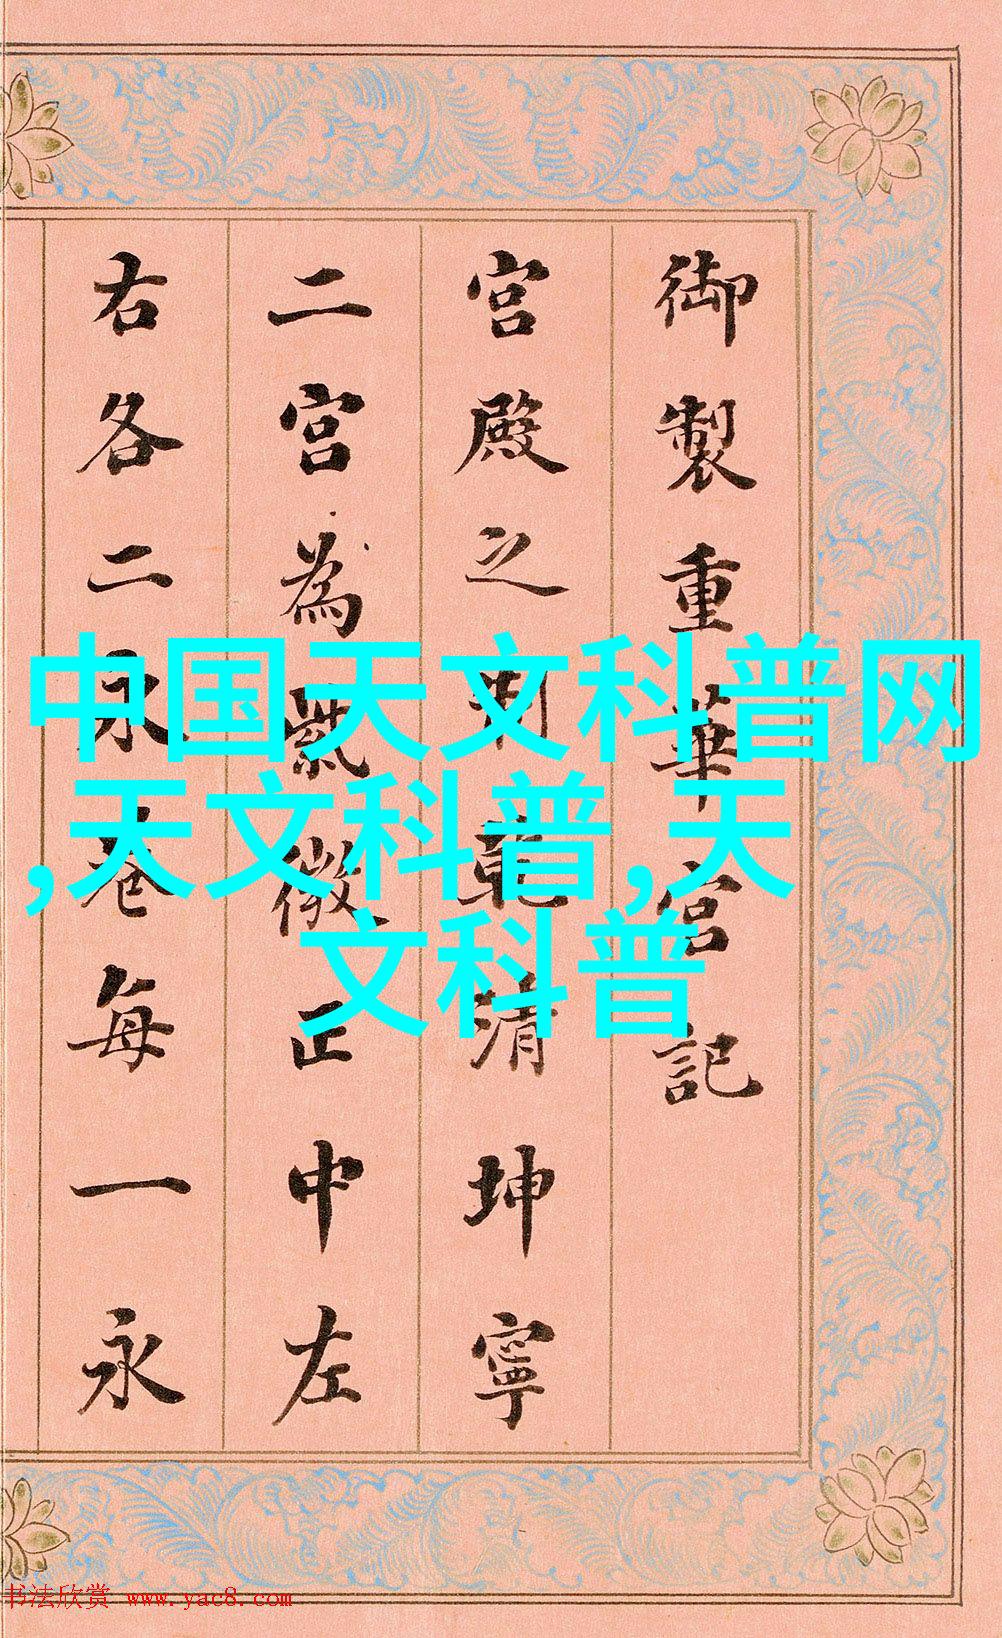 御製重華宮記
宮殿之清坤寧
二宮為紫微正中左
右各二永巷每一永
中国天文科普网
,天文科普,天
文科普
书法欣赏 www.yac8.com